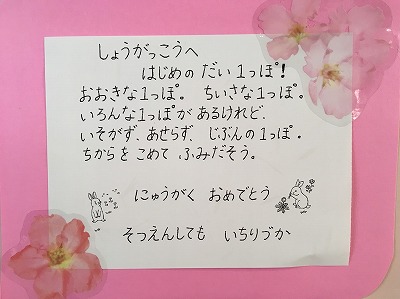 しょうがっこうへ
はじめの だい1っぽ!
おおきな1っぽ。 ちいさな1っぽ。
いろんな1っぽが あるけれど、
いそがず、あせらず、じぶんの1っぽ。
ちからを こめて ふみだそう。
にゅうがく おめでとう
そつえんしても いちりづか